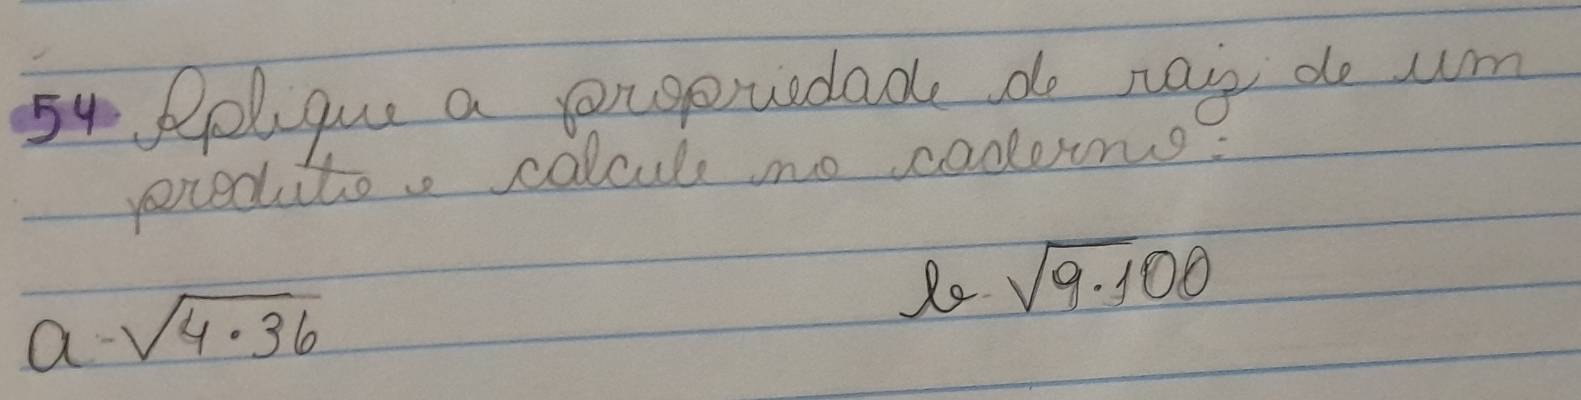 54. Aplique a propriedade de raiz de um
produto e calcule no caderno:
a - √4·36
b - √9·100